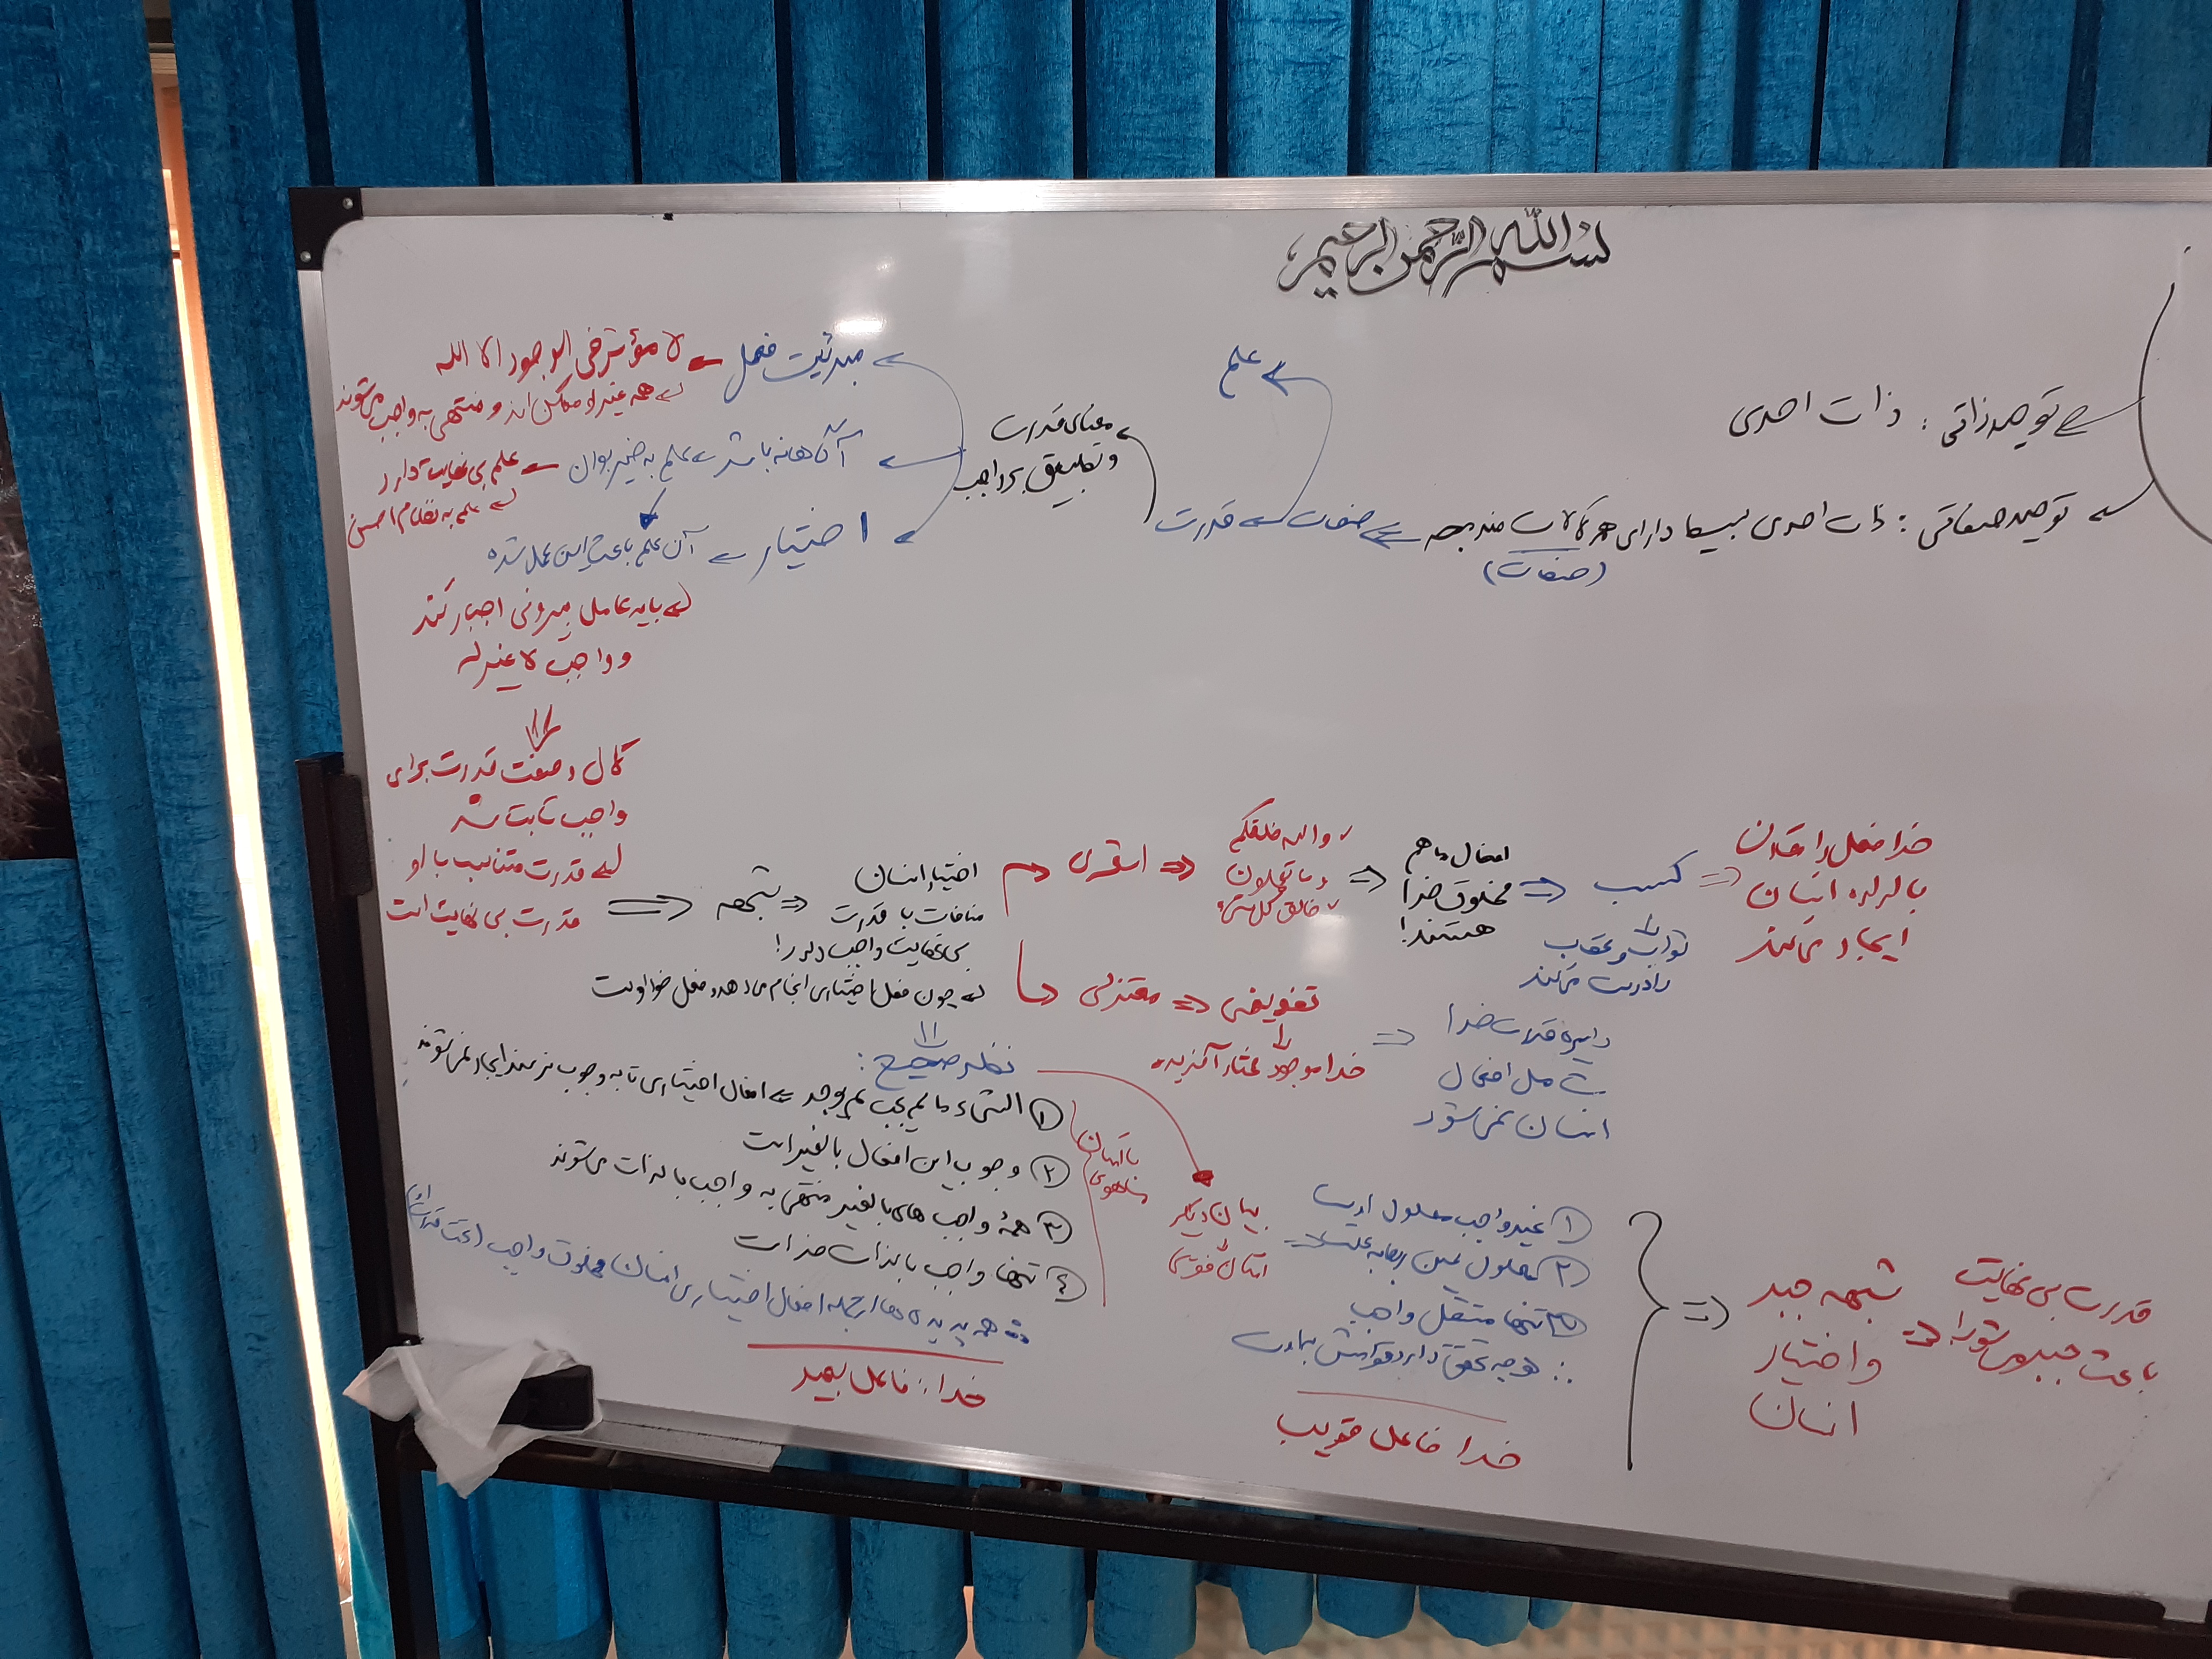 بسم الله الرحمن الرحیم
توحید ذاتی : ذات احدی
توحید صفاتی : ذات احدی بسیط دارای هر کمالات مندمجه
(صفات)
صفات
علم
قدرت
معنای قدرت
و تطبیق بر واجب
مبدئیت فعل
لا مؤثر فی الوجود الا الله
همه غیر او ممکن اند و منتهی به واجب می‌شوند
آگاهانه باشد
علم به خیر بودن
علم بی نهایت دارد
علم به نظام احسن
اختیار
آن علم باعث این عمل شده
باید عامل بیرونی اجبار کند
و واجب لا غیر له
کمال و صفت قدرت برای
واجب ثابت شد
قدرت متناسب با او
قدرت بی نهایت است
شبهه
اختیار انسان
منافات با قدرت
بی نهایت واجب دارد!
چون فعل اختیاری انجام می‌دهد و فعل خود اوست
اشعری
والله خلقکم
و ما تعملون
خالق کل شیء
افعال ما هم
مخلوق خدا
هستند!
کسب
ثواب و عقاب
را درست می‌کند
خدا فعل را مقارن
با اراده انسان
ایجاد می‌کند
معتزلی
تفویض
خدا موجود مختار آفریده
دایره قدرت خدا
شامل افعال
انسان نمی‌شود
نظر صحیح :
۱ الشیء ما لم یجب لم یوجد افعال اختیاری تا به وجوب نرسند ایجاد نمی‌شوند
۲ وجوب این افعال بالغیر است
۳ همهٔ واجب های بالغیر منتهی به واجب بالذات می‌شوند
۴ تنها واجب بالذات خداست
همه پدیده‌ها از جمله افعال اختیاری انسان مخلوق واجب و تحت قدرت او
خدا : فاعل بعید
بیان دیگر
۱ غیر واجب معلول اوست
۲ معلول عین ربط به علت
۳ تنها مستقل واجب
خدا فاعل قریب
شبهه جبر
و اختیار
انسان
قدرت بی نهایت
باعث جبر می‌شود!